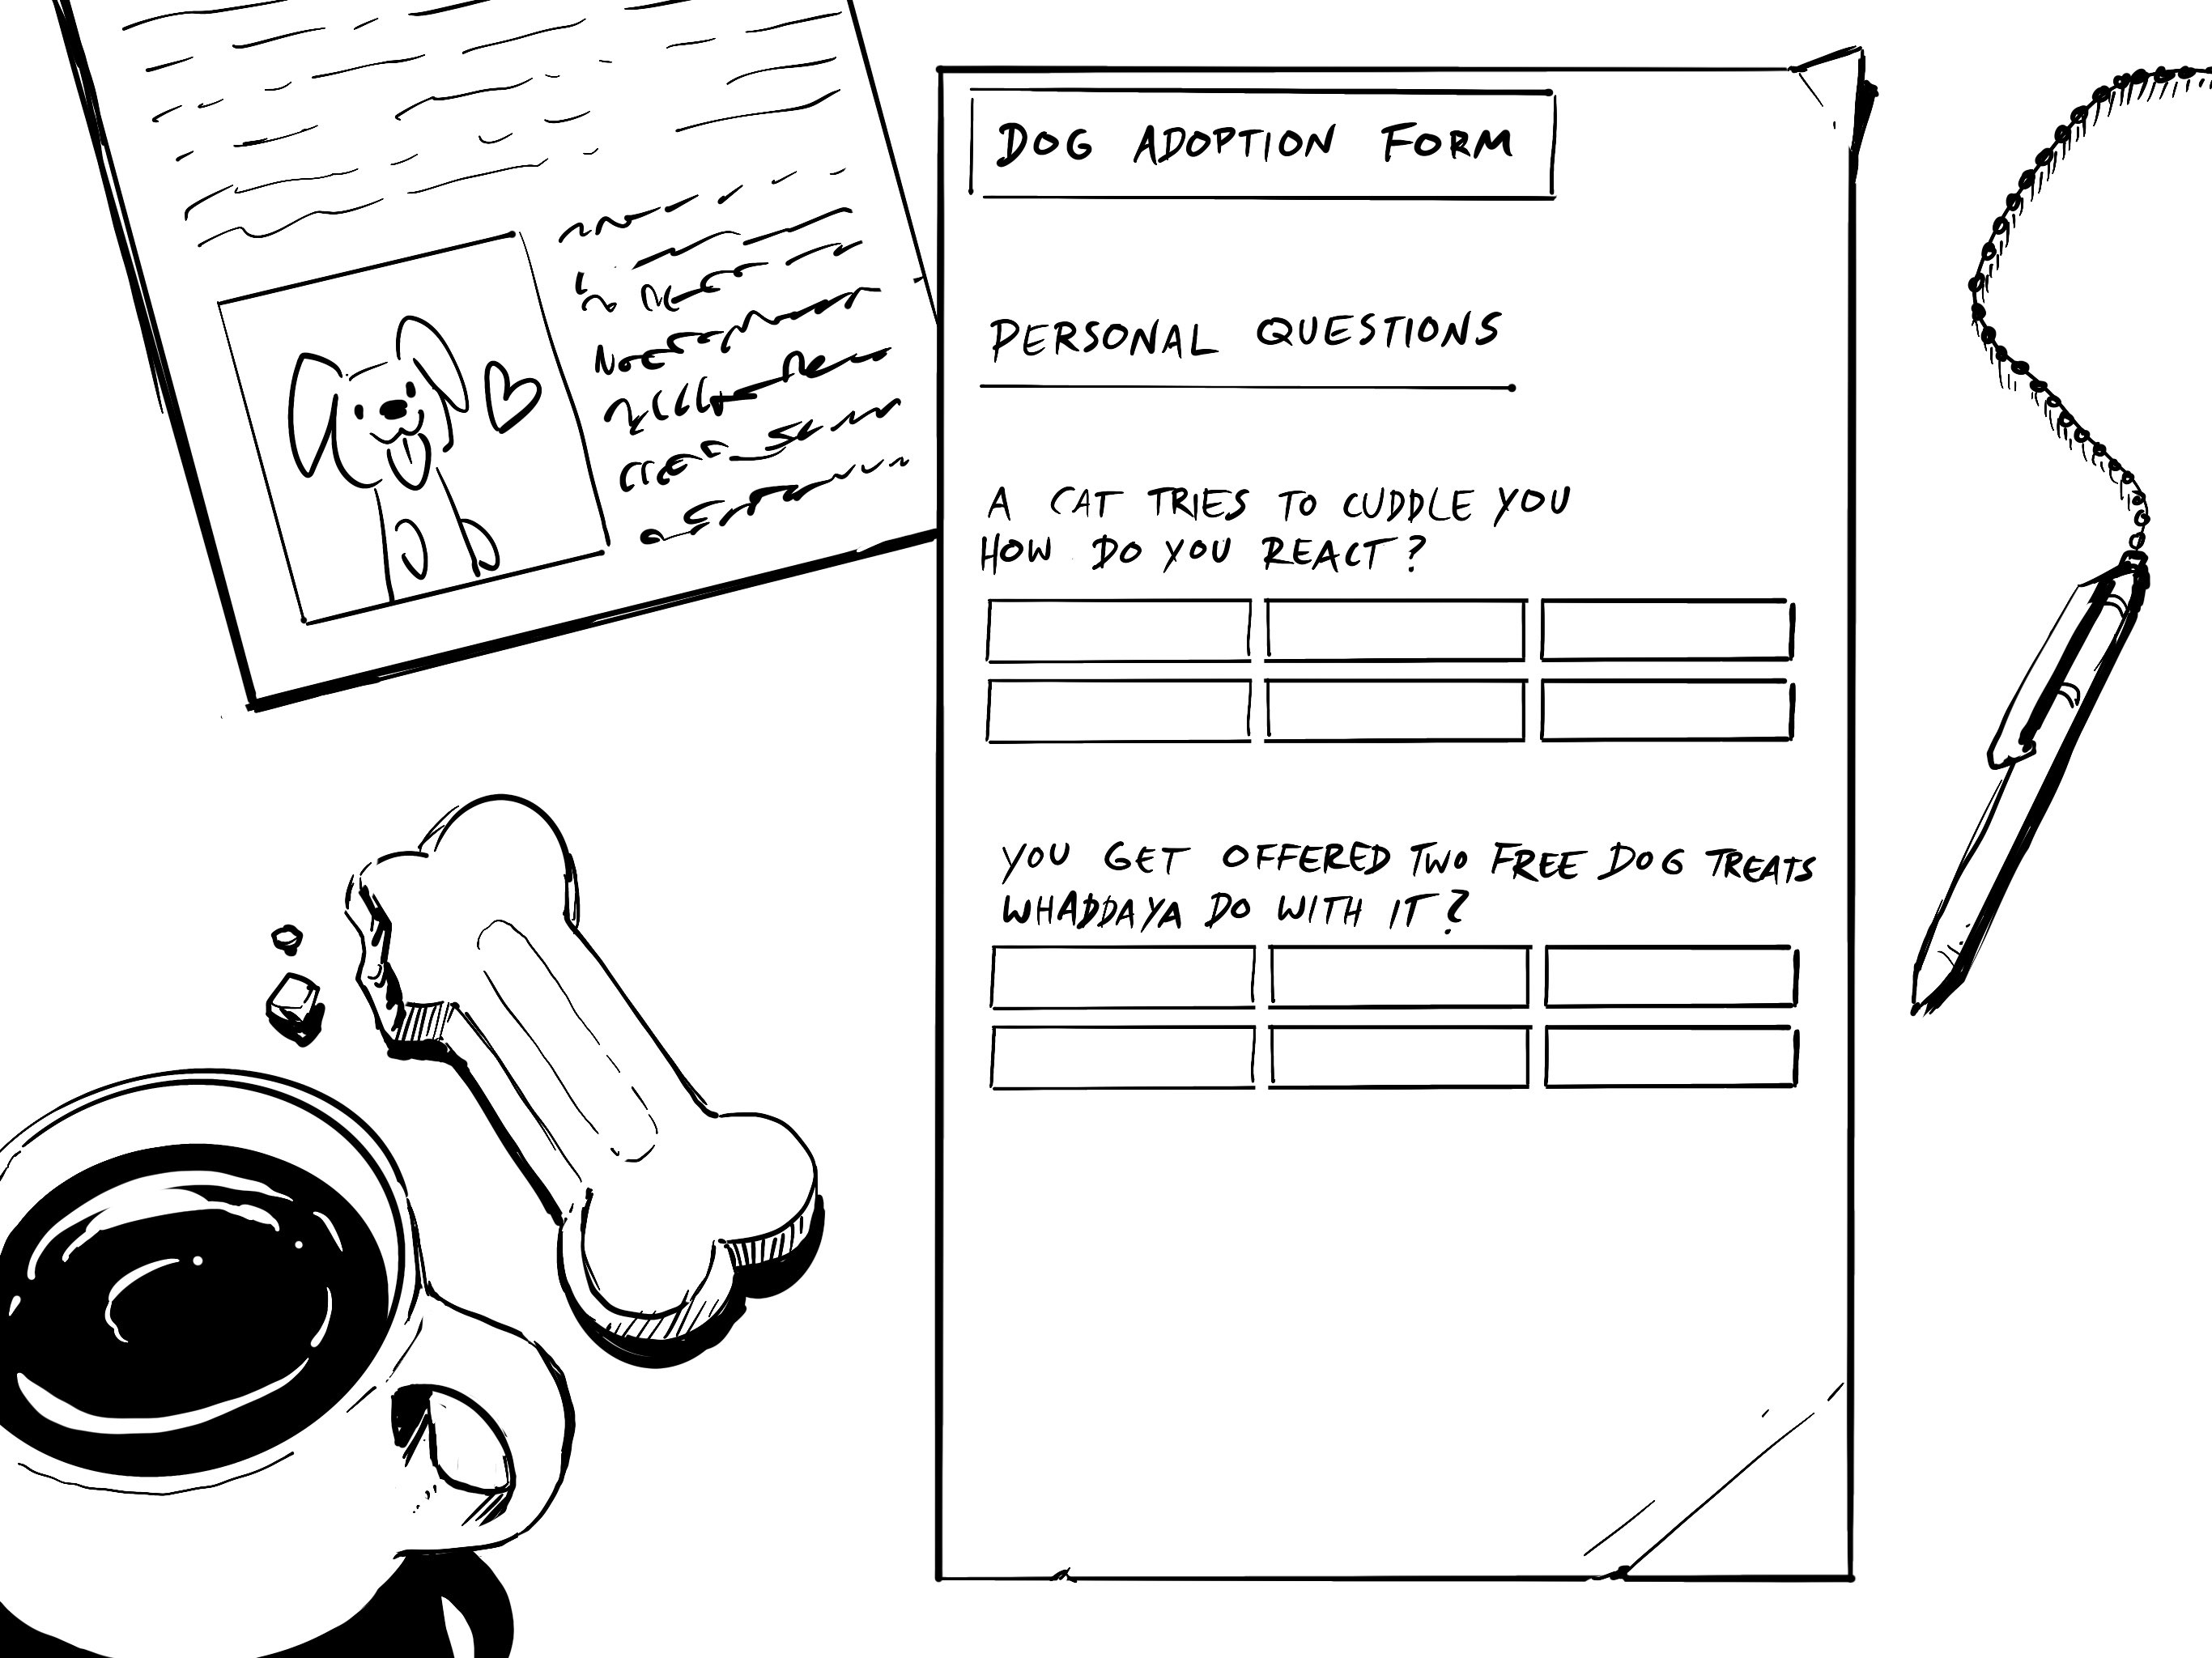 DOG ADOPTION FORM
PERSONAL QUESTIONS
A CAT TRIES TO CUDDLE YOU
HOW DO YOU REACT?
YOU GET OFFERED TWO FREE DOG TREATS
WHADDAYA DO WITH IT?